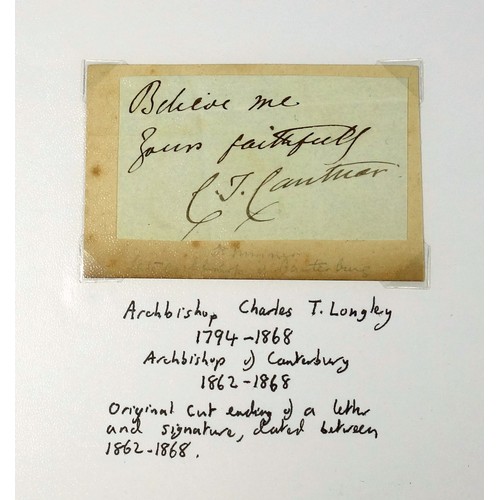 Believe me
Yours faithfully
C. T. Cantuar
Archbishop Charles T. Longley
1794-1868
Archbishop of Canterbury
1862-1868
Original cut ending of a letter
and signature, dated between
1862-1868.